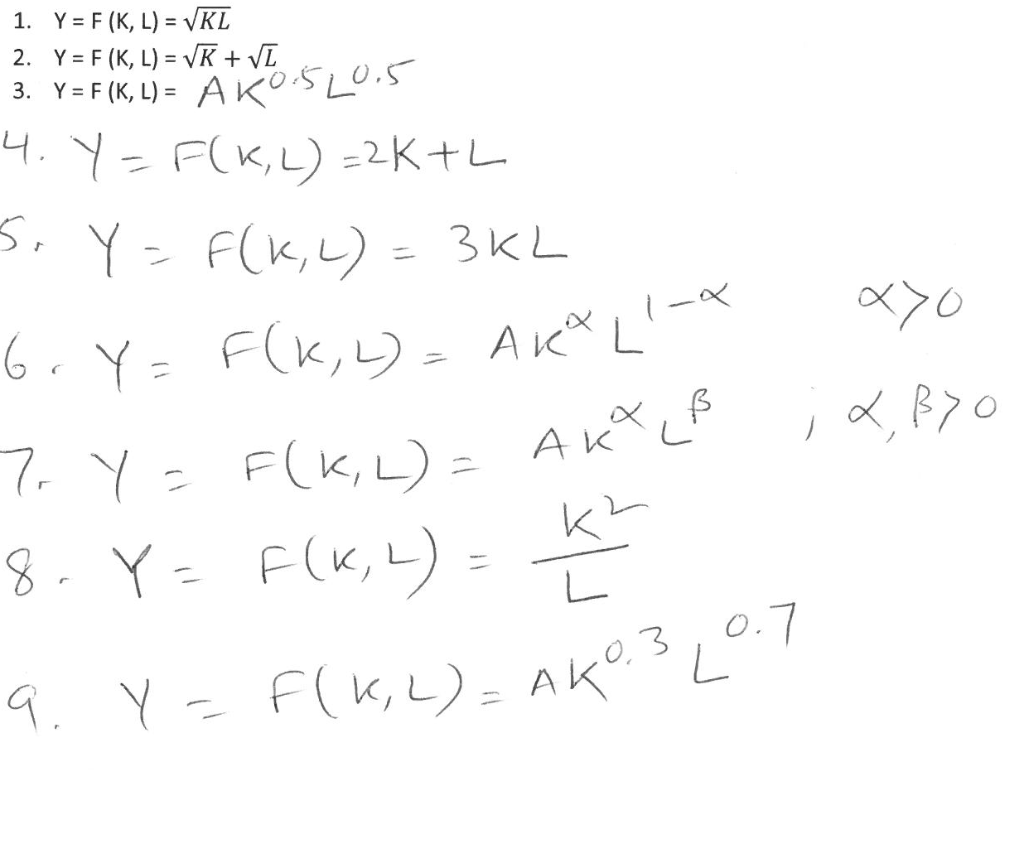 1. Y = F (K, L) = √KL
2. Y = F (K, L) = √K + √L
3. Y = F (K, L) = AK^0.5 L^0.5
4. Y = F(K,L) = 2K+L
5. Y = F(K,L) = 3KL
6. Y = F(K,L) = AK^α L^1-α α>0
7. Y = F(K,L) = AK^α L^β ; α, β>0
8. Y = F(K,L) = K^2/L
9. Y = F(K,L) = AK^0.3 L^0.7